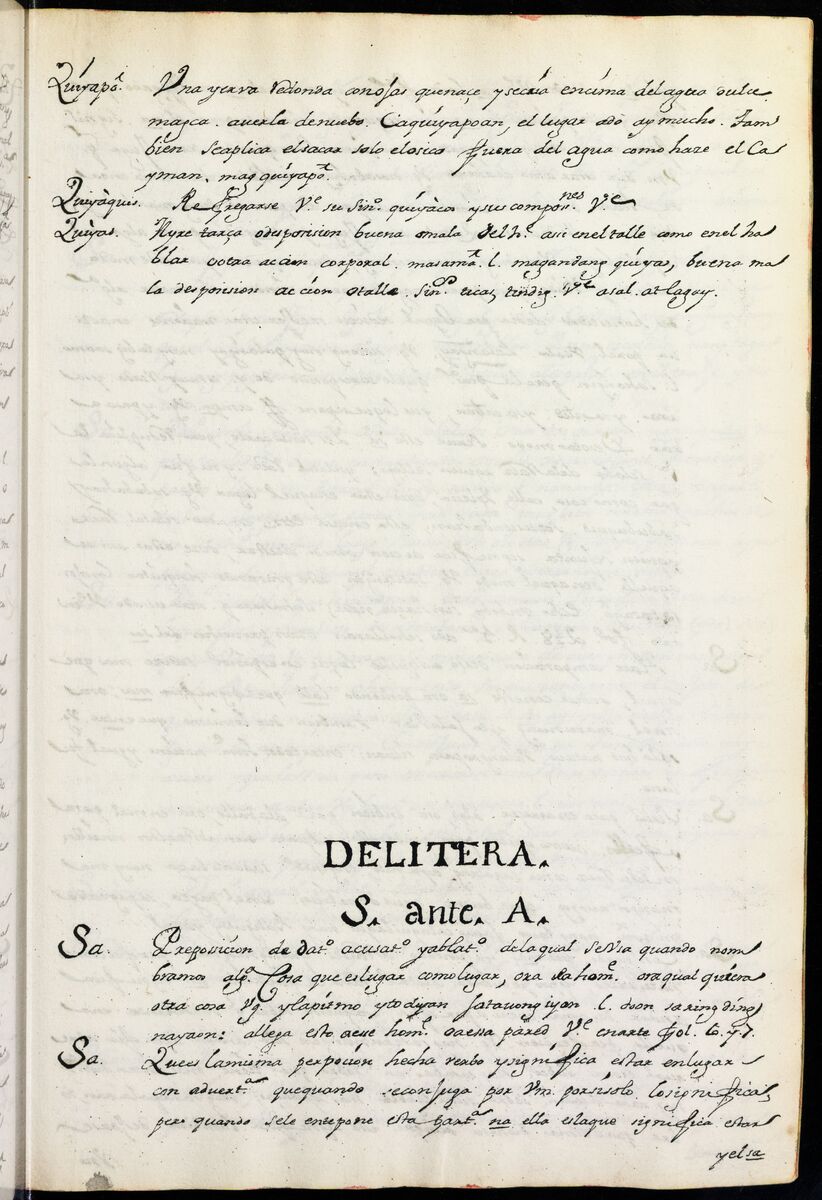 Quíyapo. Vna yerva redonda con ojas que naçe y se cria encima del agua dulce.
magca. averla de nuebo. Caquiyapoan, el lugar adó ay mucho. Tam
bien se aplica el sacar solo el osico fuera del agua como haze el Ca
yman. mag quiyapo.
Quiyàquis. Refregarse Ve. su sino. quiyàcos y sus componnes. Ve
Quiyas. Ayre traça o desposision buena o mala del he. asi en el talle como en el ha
blar u otra accion corporal. masama. l. magandang quiyas, buena ma
la desposision acción o talle. sinos. ticas, tindig. Ve. asal. at lagay.
DELITERA.
S. ante. A.
Sa. Preposición de dato. acusato. y ablato. de la qual se vsa quando nom
bramos algo. Cosa que es lugar como lugar, ora sea home. ora qual quiera
otra cosa Vg. ylapit mo ytodyan sa tauong iyon l. doon sa ring ding
na yaon: allega esto a ese home. o a essa pared Ve. en arte fol. 6. y 7.
Sa. Que es la misma perpocion hecha verbo y significa estar en lugar
con adverta. que quando se conjuga por Vm. por si solo lo significa,
pero quando se le antepone esta parta. na ella es la que significa estar
y el sa